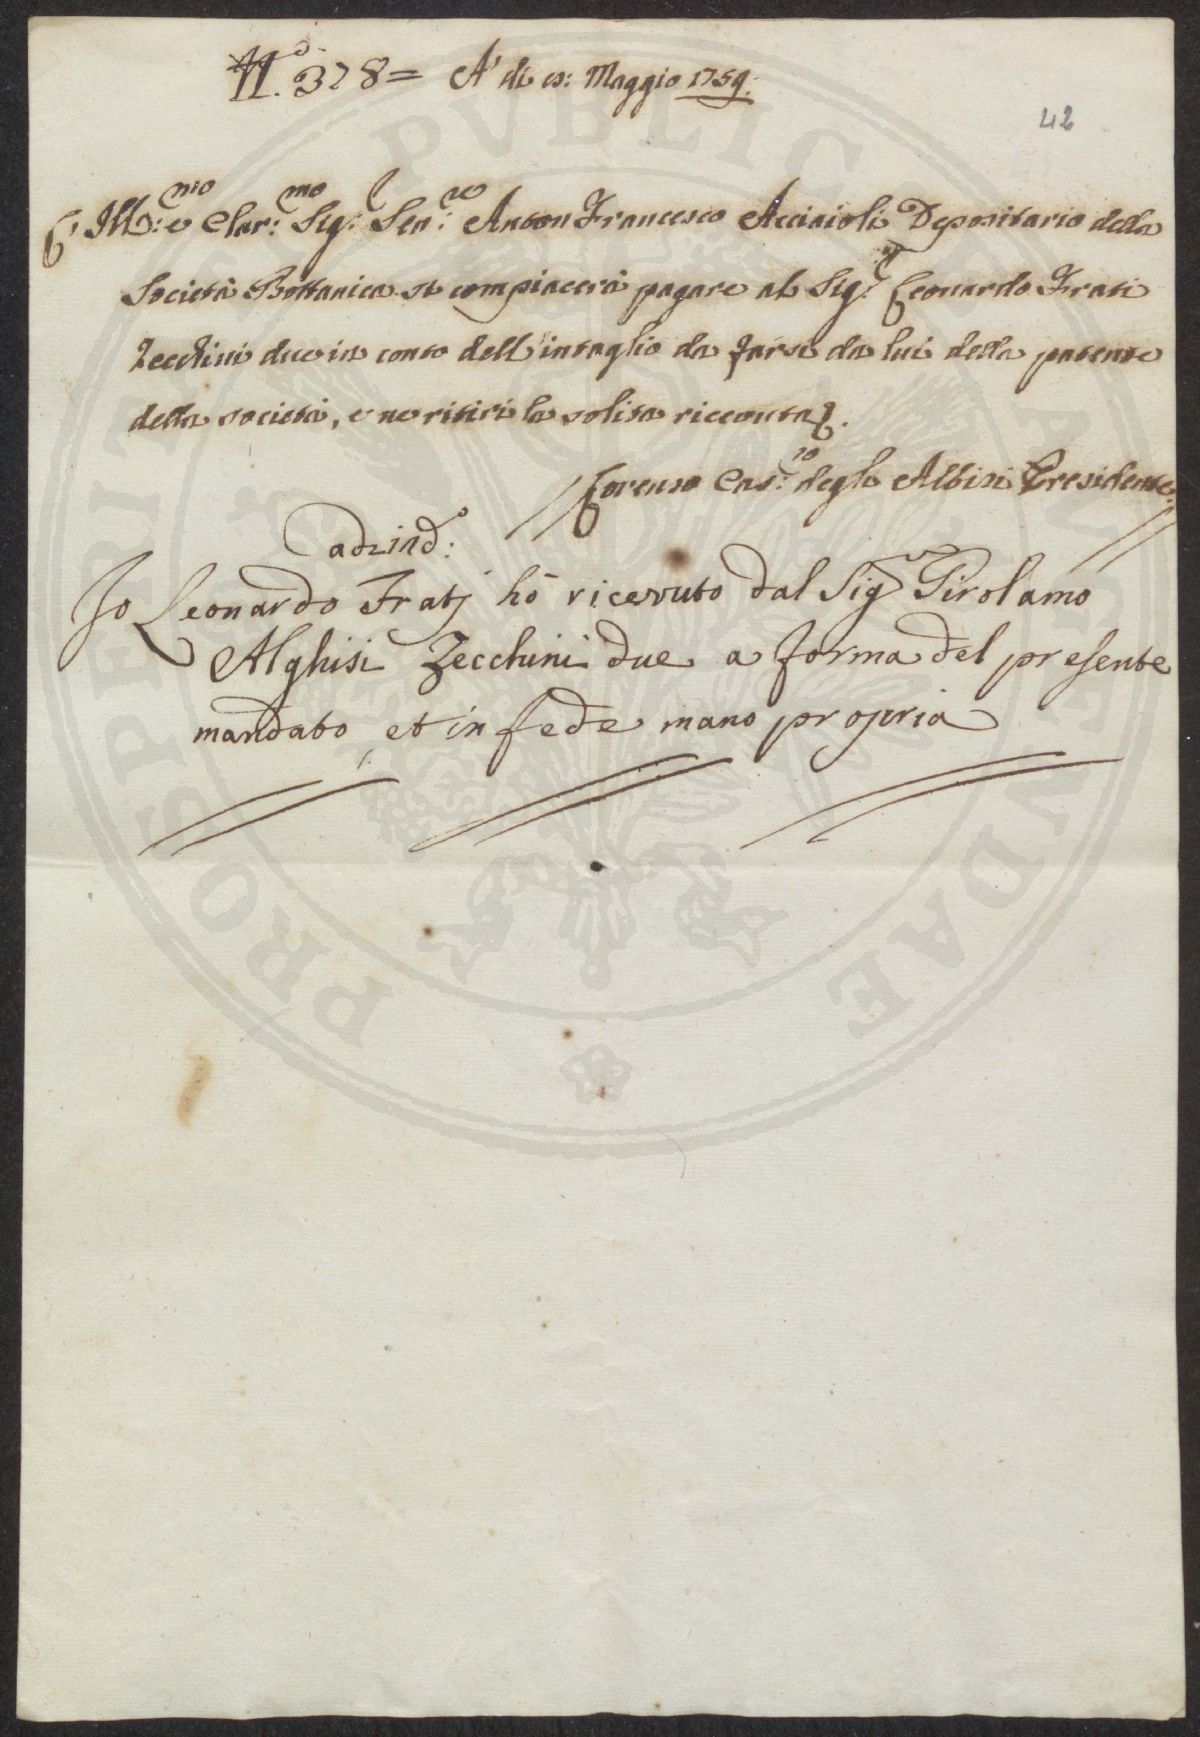 N.o 328= A' dì es: Maggio 1759.
42
L' Ill:mo e Clar:mo Sig:r Sen:re Anton Francesco Acciaioli Depositario della
Società Bottanica si compiacerà pagare al Sig:r Leonardo Frati
Zecchini due in conto dell'intaglio da farsi da lui della patente
della società, e ne ritiri la solita riceuuta.
Lorenzo Cas:ro degli Albizi Presidente
adi ind:o
Io Leonardo Fratj hò ricevuto dal Sig.r Girolamo
Alghisi Zecchini due a forma del presente
mandato, et in fede mano propria
PROSPERITATI PVBLICAE AVGENDAE